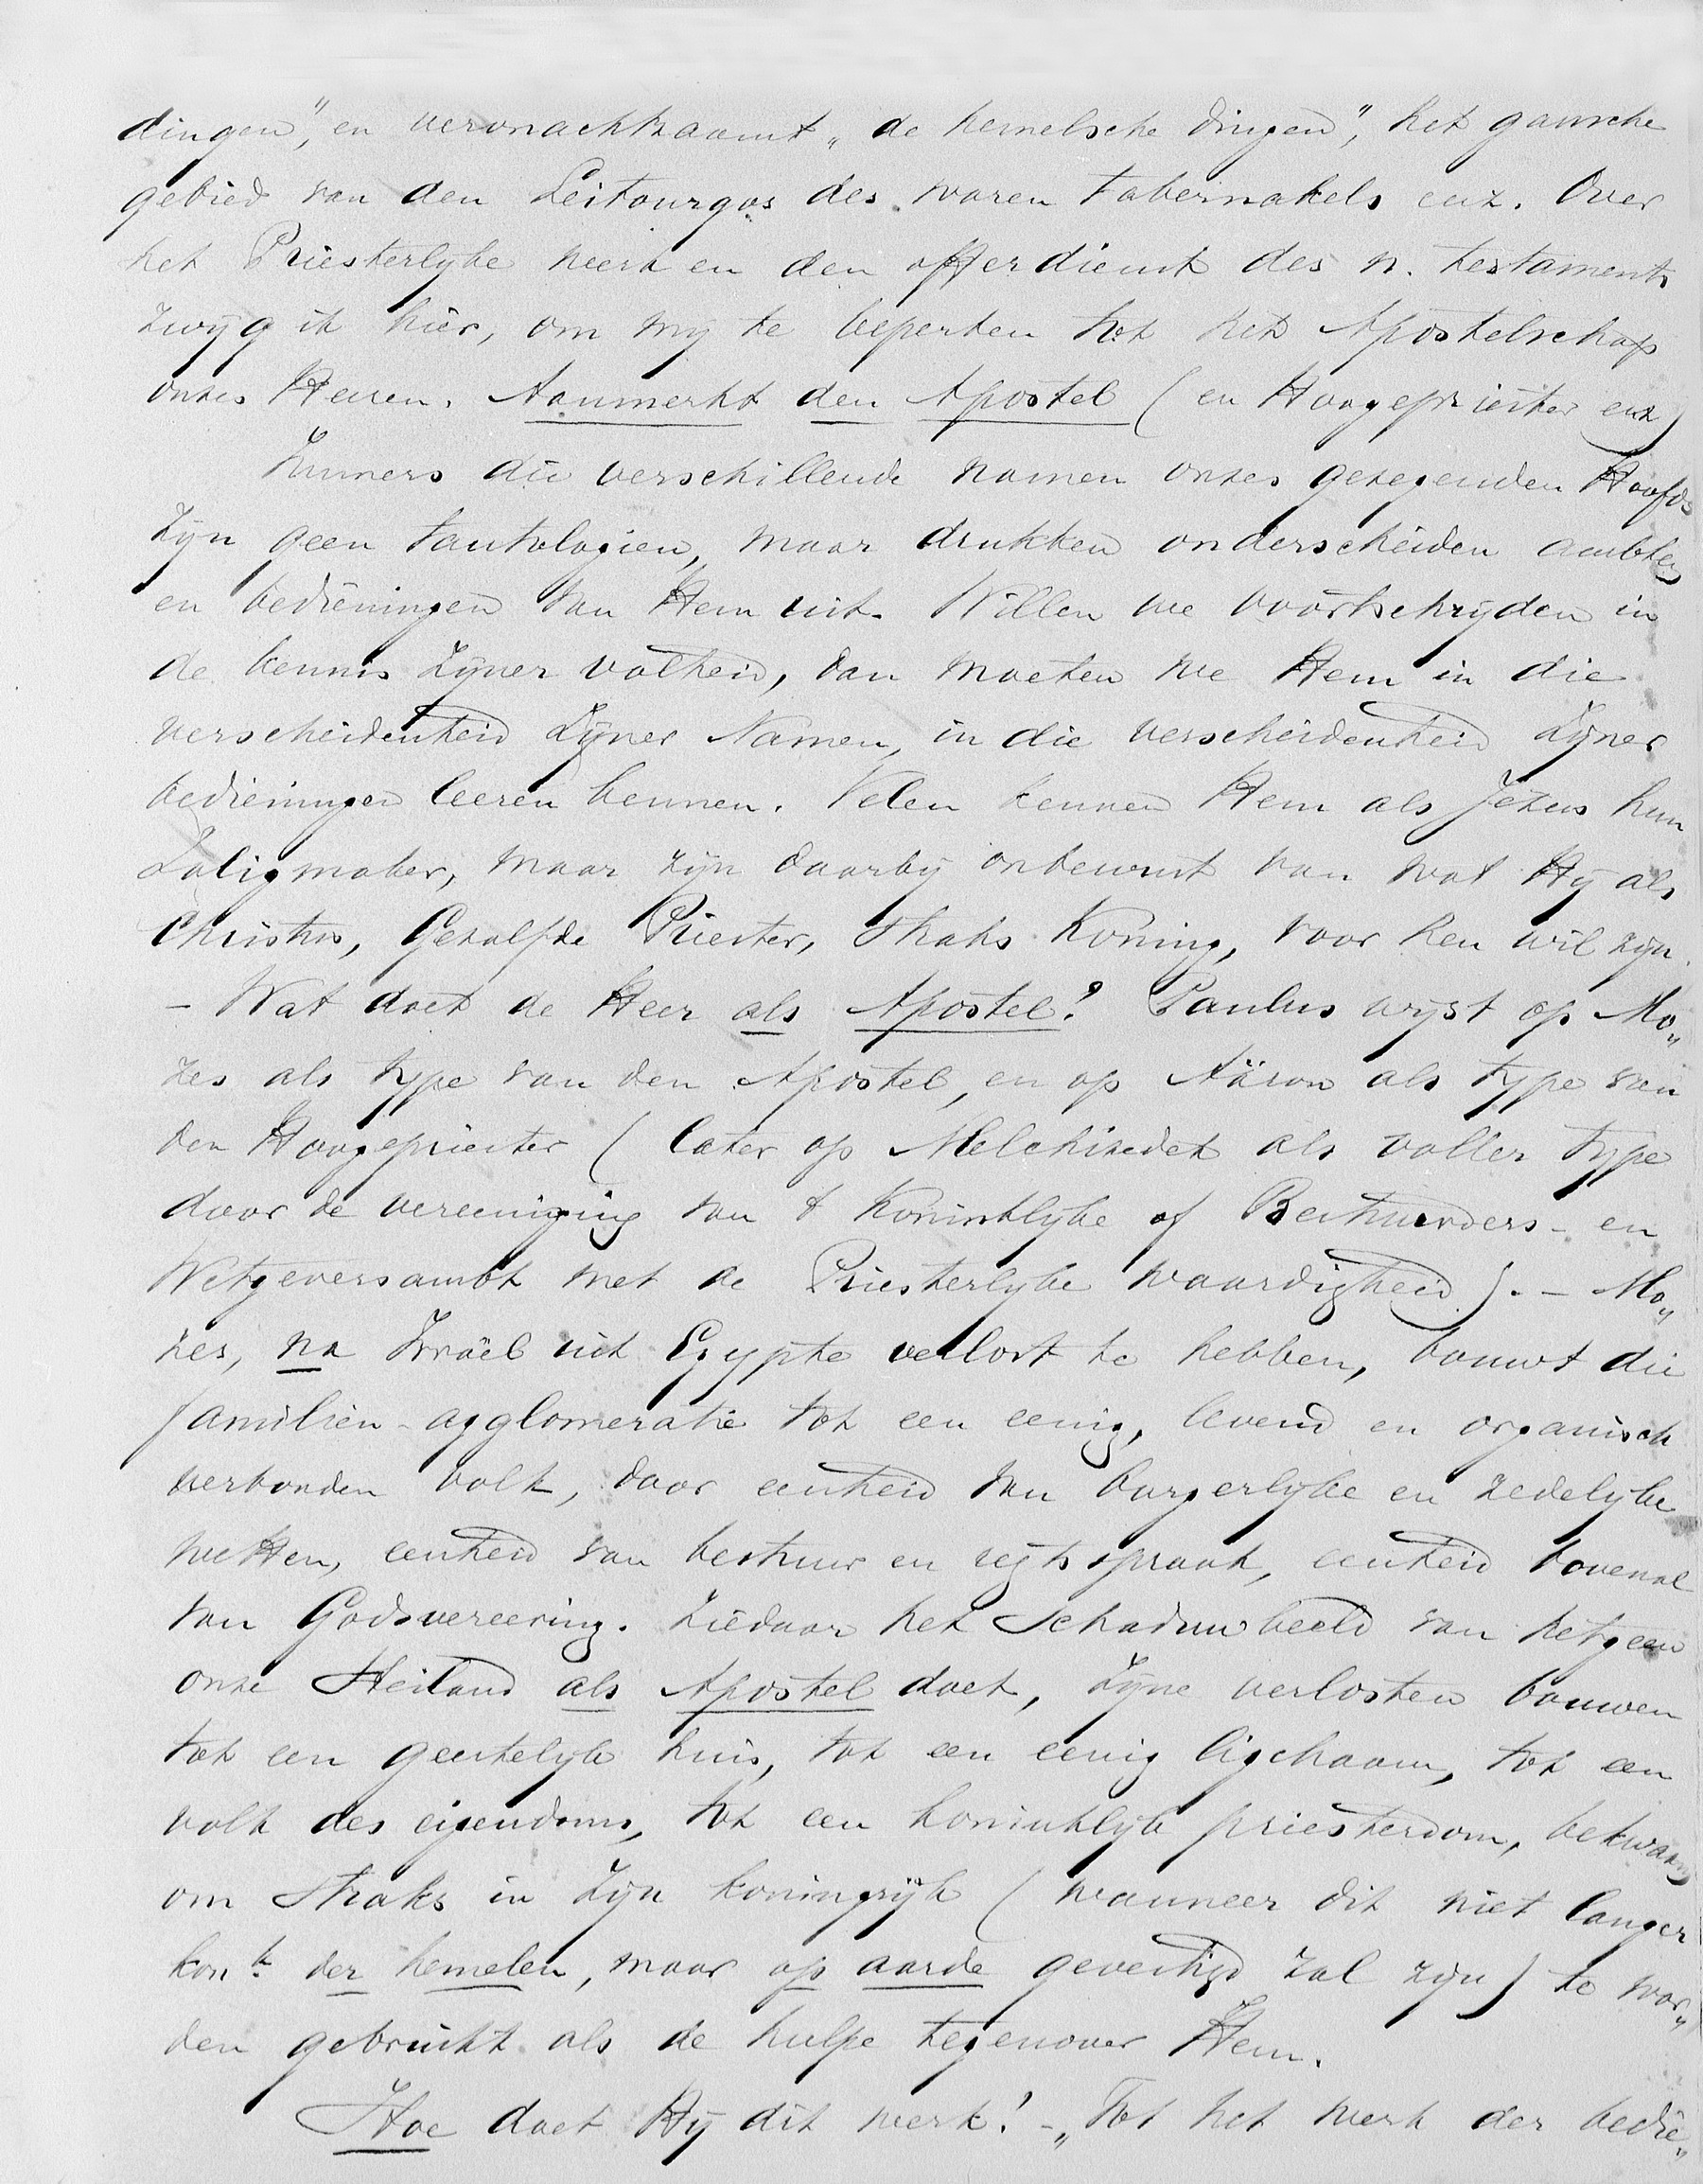 dingen”, en veronachtzaamt „de hemelsche dingen”, het gansche
gebied van den Leitourgos des waren tabernakels enz. Over
het Priesterlyke werk en den offerdienst des n. testaments
zwyg ik hier, om my te beperken tot het Apostelschap
onzes Heeren. Aanmerkt den Apostel (en Hoogepriester enz)
Immers die verschillende namen onzes gezegenden Hoofds
zyn geen tautologien, maar drukken onderscheiden ambten
en bedieningen van Hem uit. Willen we voortschryden in
de kennis Zyner volheid, dan moeten we Hem in die
verscheidenheid Zyner Namen, in die verscheidenheid Zyner
bedieningen leeren kennen. Velen kennen Hem als Jezus hun
Zaligmaker, maar zyn daarby onbewust van wat Hy als
Christus, Gezalfde Priester, straks Koning, voor hen wil zyn.
- Wat doet de Heer als Apostel? Paulus wyst op Mo„
zes als type van den Apostel, en op Aäron als type van
den Hoogepriester (later op Melchizedek als voller type
door de vereeniging van 't Koninklyke of Bestuurders- en
Wetgeversambt met de Priesterlyke waardigheid). - Mo„
zes, na Israël uit Egypte verlost te hebben, bouwt die
familien-agglomeratie tot een eenig, levend en organisch
verbonden volk, door eenheid van burgerlyke en zedelyke
wetten, eenheid van bestuur en regtspraak, eenheid bovenal
van Godsvereering. Ziedaar het schaduwbeeld van hetgeen
onze Heiland als Apostel doet, Zyne verlosten bouwen
tot een geestelyk huis, tot een eenig ligchaam, tot een
volk des eigendoms, tot een koninklyk priesterdom, bekwaam
om straks in Zyn koningryk (wanneer dit niet langer
kon.k der hemelen, maar op aarde gevestigd zal zyn) te wor„
den gebruikt als de hulpe tegenover Hem.
Hoe doet Hy dit werk? - „Tot het werk der bedie„